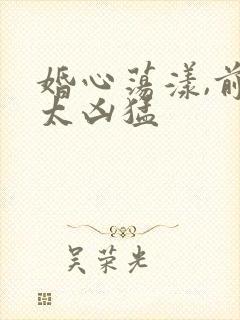 婚心荡漾,前
太凶猛
吴荣光